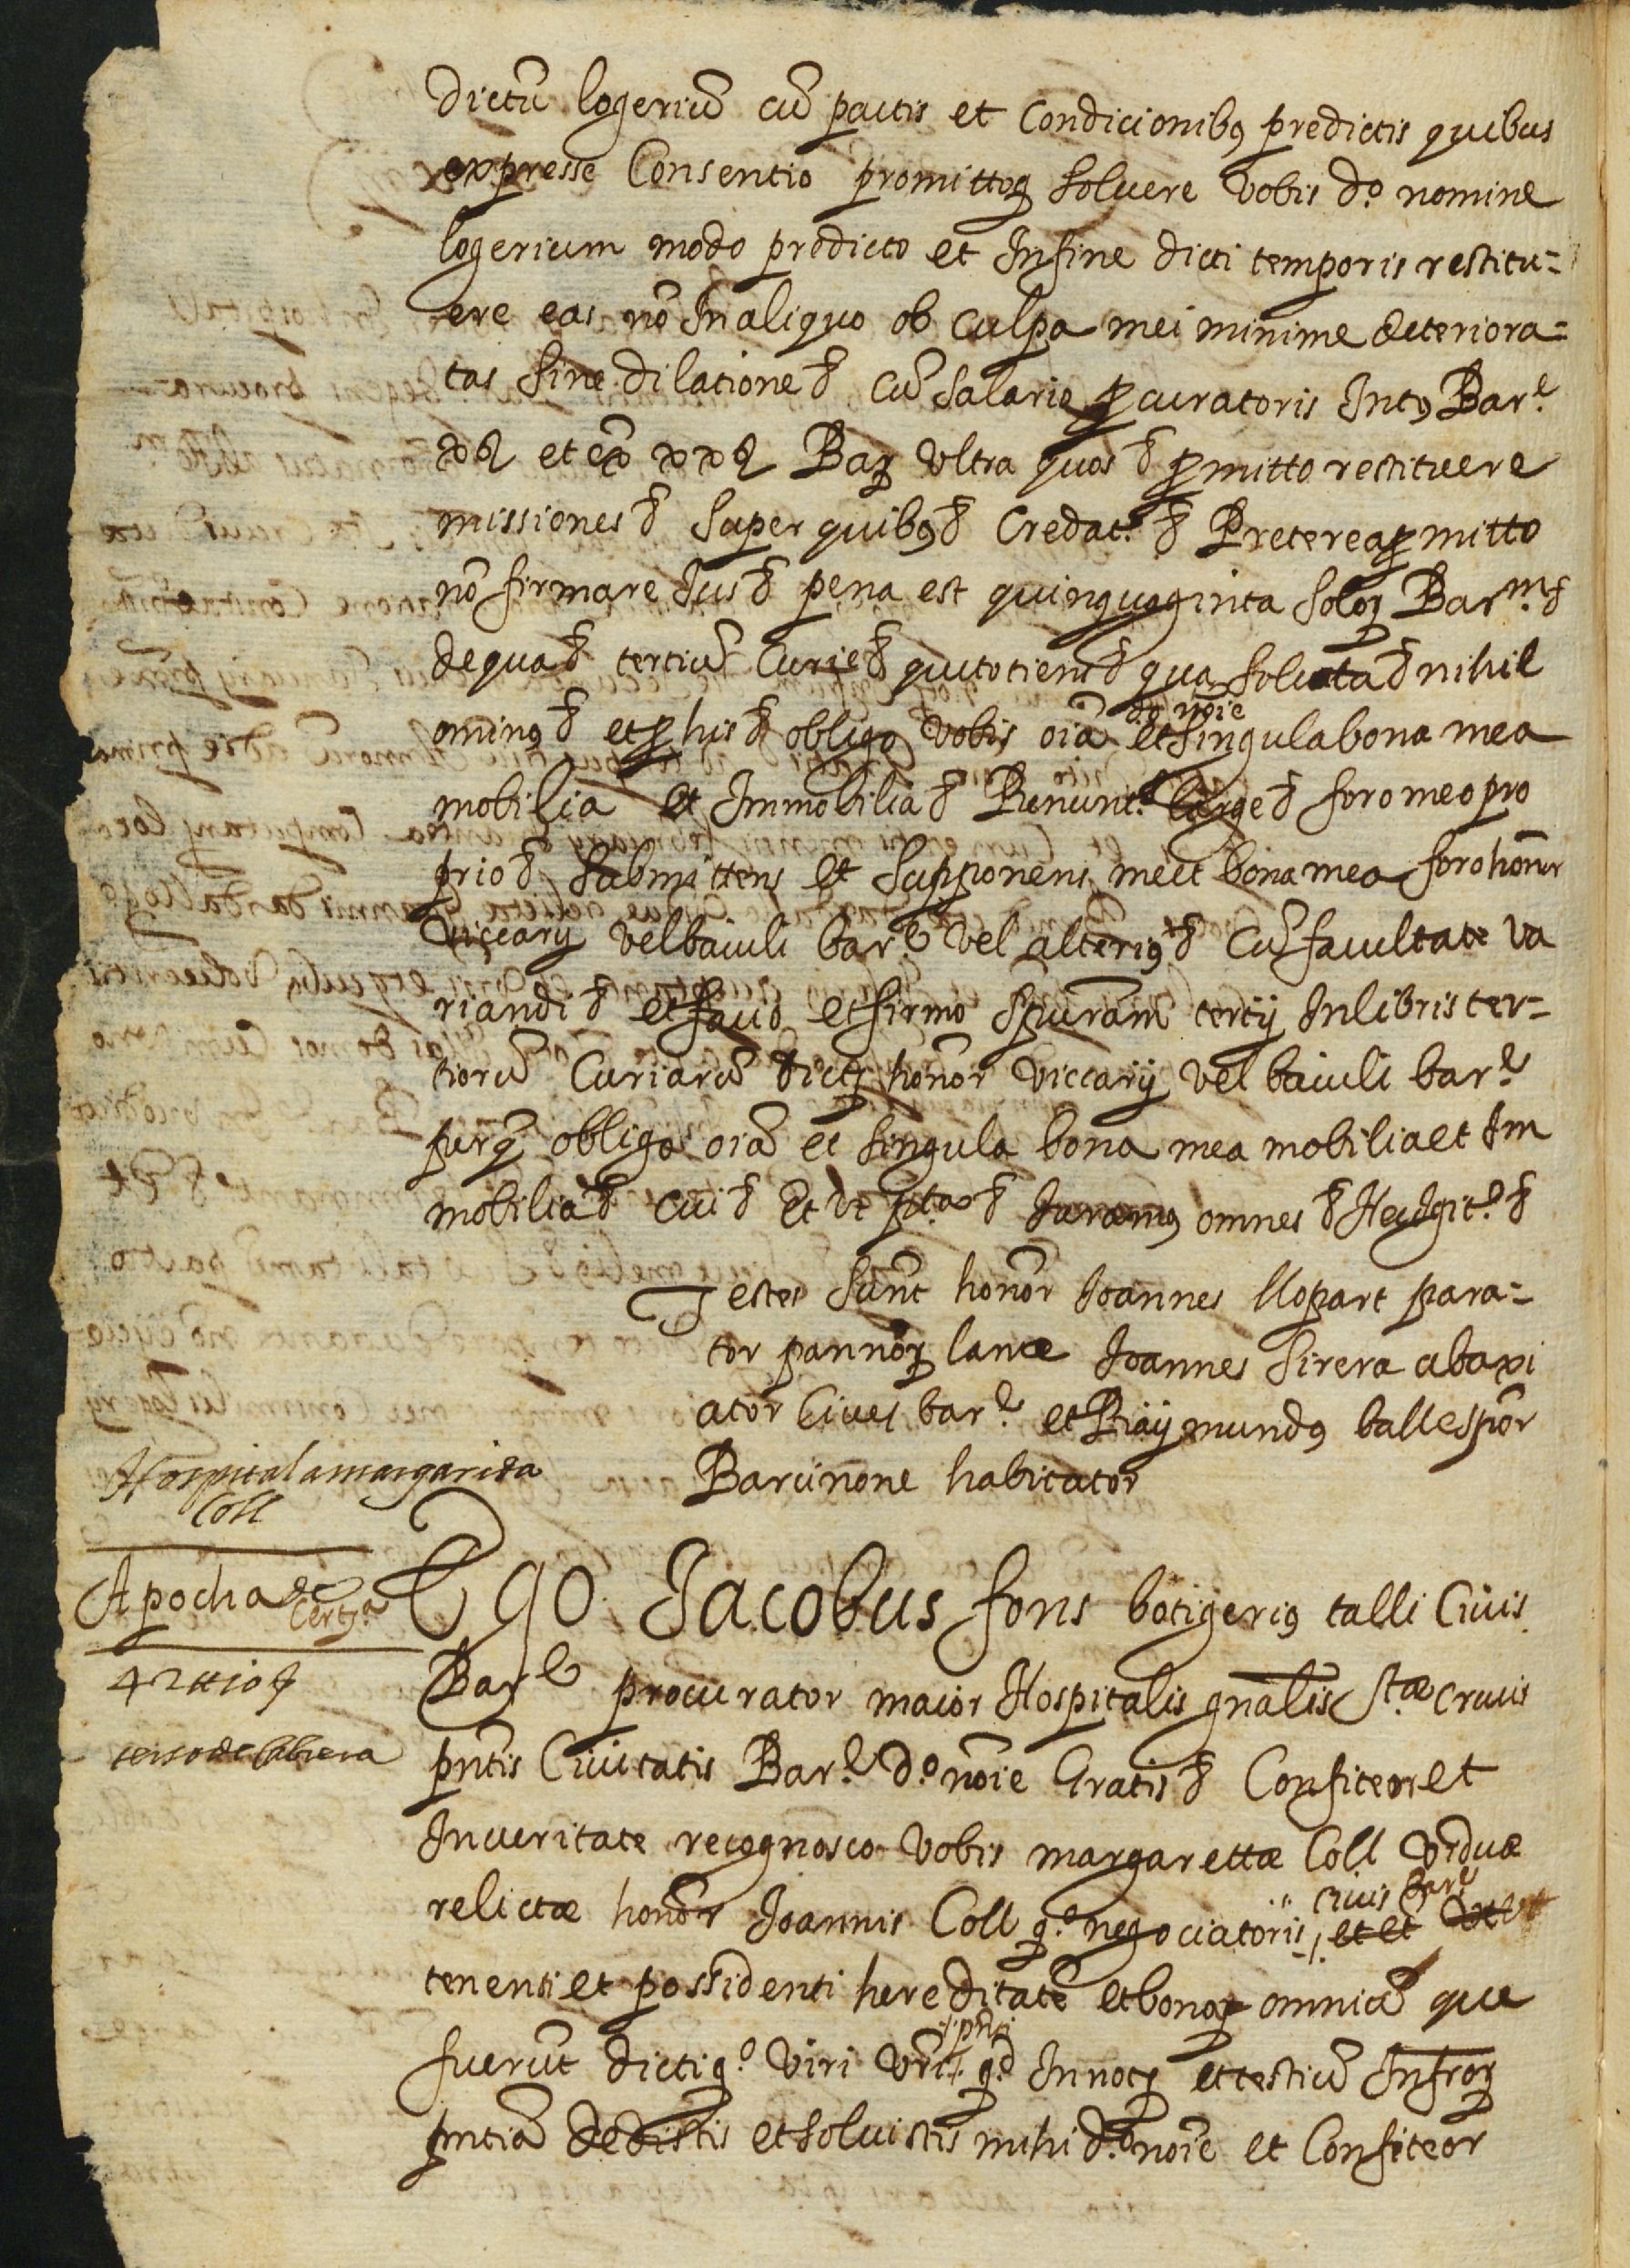 dictũ logeriũ cũ pactis et condicionibꝯ predictis quibus
expresse Consentio promittoqꝫ soluere vobis d.º nomine
logerium modo predicto et Infine dicti temporis restitu=
ere eas nõ In aliquo ob culpa mei minime deteriora=
tas sine dilatione &c̃ cũ salario ꝓcuratoris Intꝯ Bar.ᵉ
et ex̃ Barꝫ vltra quos &c̃ ꝓmitto restituere
missiones &c̃ super quibꝯ &c̃ Credat.ʳ &c̃ Preterea ꝓmitto
nõ firmare Jus &c̃ pena est quinquaginta soloꝝ Bar.ᵐ &c̃
de qua &c̃ tertiũ Curie &c̃ qui totiens &c̃ qua soluta &c̃ nihil
ominꝯ &c̃ et ꝓ his &c̃ obligo vobis d.º noĩe oĩa et singula bona mea
mobilia et Immobilia &c̃ Renunt.ˢ large &c̃ foro meo pro
prio &c̃ submittens et supponens me et bona mea foro honor̃
viccarij vel baiuli bar.ᵉ vel alteriꝯ &c̃ cũ facultate va
riandi &c̃ et facio et firmo scripturam tertij In libris ter=
tiorũ Curiarũ dictoꝝ honor̃ viccarij vel baiuli bar.ᵉ
ꝑ qua obligo oĩa et singula bona mea mobilia et Im
mobilia &c̃ cui &c̃ Et vt p̃dicta &c̃ Juramꝯ omnes &c̃ Hec Igit.ʳ &c̃
Testes sunt honor̃ Joannes llopart para=
tor pannoꝝ lanæ Joannes sirera abaxi
ator Ciues bar.ᵉ et Raÿmundꝯ ballespor̃
Barcinone habitator
Hospital a margarida
Coll
Apocha de
Certa
42 ₶ 10 ſ
censo de Cabrera
Ego Jacobus fons botigeriꝯ talli Ciuis
Barᵉ procurator maior Hospitalis gñalis s.ᵗæ crucis
pñtis Ciuitatis Bar.ᵉ d.º noĩe Gratis &c̃ Confiteor et
In veritate recognosco vobis margarettæ Coll viduæ
relictæ honor̃ Joannis Coll q.º negociatoris ciuis Bar.ᵉ et et
tenenti et possidenti hereditatẽ et bona omnia que
fuerũt dicti q.º viri vr̃i pñti qd̃ In notꝫ et testiũ Infroꝝ
pñtia dedistis et soluistis mihi d.º noĩe et Confiteor